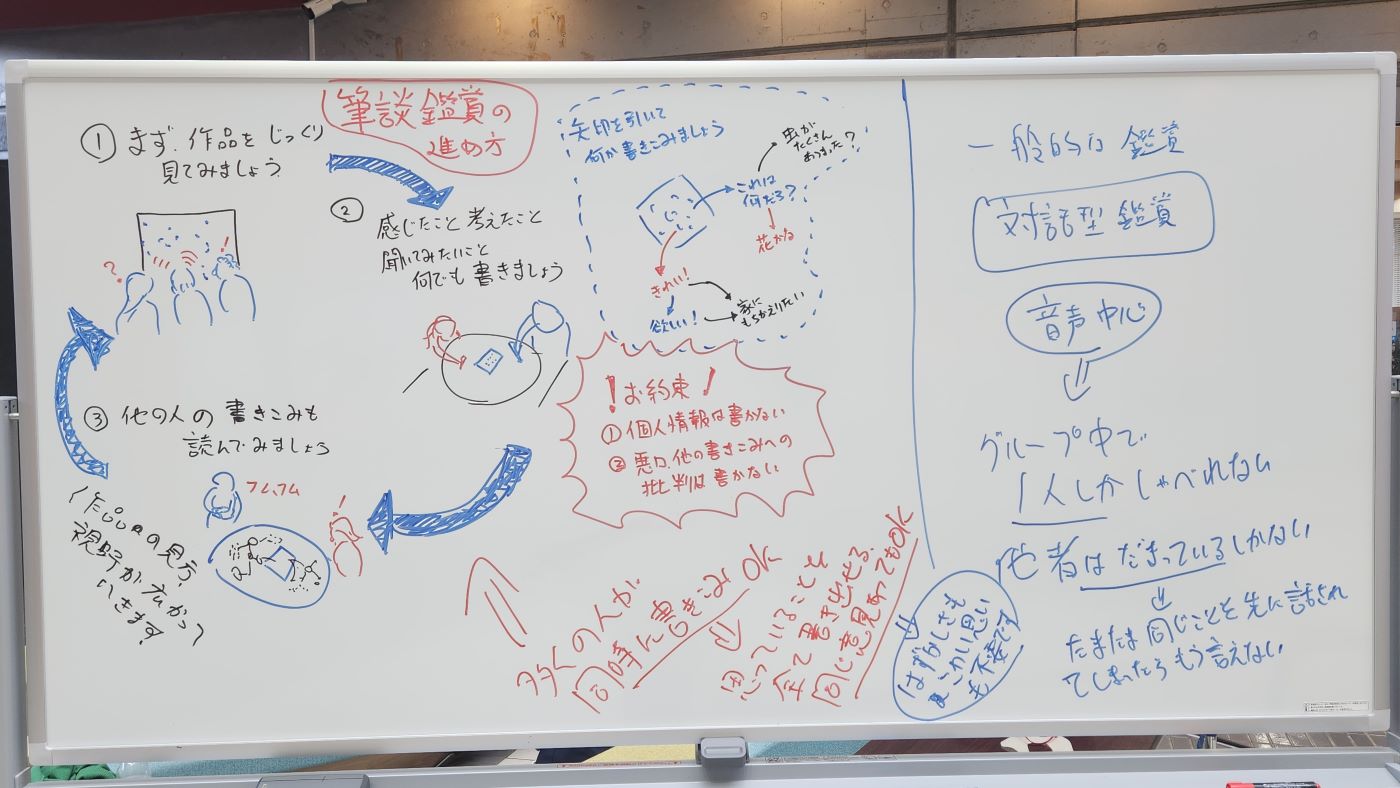 筆談鑑賞の
進め方
① まず、作品をじっくり
見てみましょう
?
!
② 感じたこと 考えたこと
聞いてみたいこと
何でも書きましょう
矢印を引いて
何か書きこみましょう
これは
何だろ?
虫が
たくさん
あつまった?
花かな
きれい!
欲しい!
家に
もちかえりたい
!お約束!
① 個人情報は書かない
② 悪口、他の書きこみへの
批判は書かない
③ 他の人の書きこみも
読んでみましょう
フム、フム
!
作品の見方、
視野が広がって
いきます!
多くの人が
同時に書きこみOK
思っていることを
全て書き出せる。
同じ意見あってもOK
一般的な鑑賞
対話型鑑賞
音声中心
グループ中で
1人しかしゃべれない
他者はだまっているしかない
たまたま同じことを先に話され
てしまったらもう言えない
はずかしさも
こわい思い
も不要です